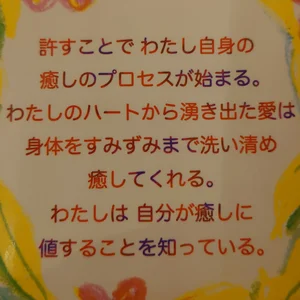 許すことで わたし自身の
癒しのプロセスが始まる。
わたしのハートから湧き出た愛は
身体をすみずみまで洗い清め
癒してくれる。
わたしは 自分が癒しに
値することを知っている。